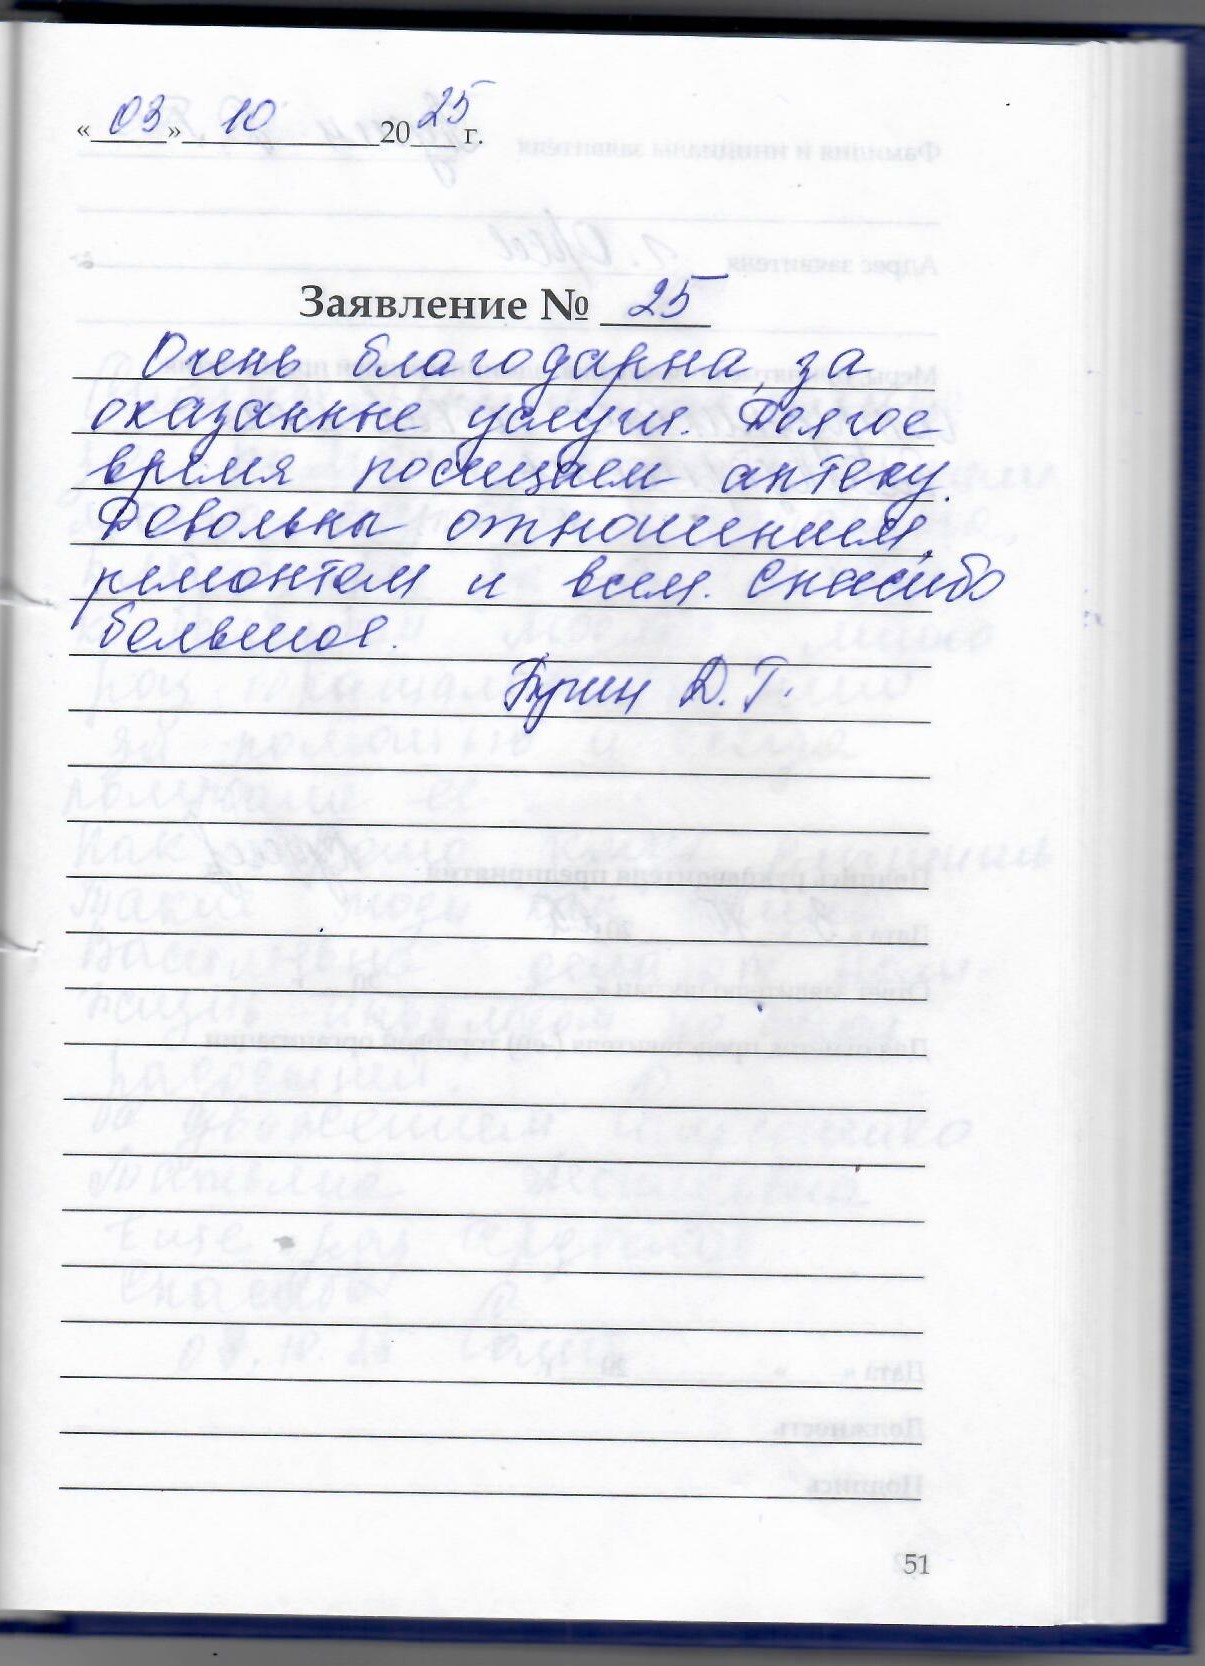 «03» 10 2025 г.
Заявление № 25
Очень благодарна, за
оказанные услуги. Долгое
время посещаем аптеку.
Довольны отношением,
ремонтом и всем. Спасибо
большое.
Д. Г.
51